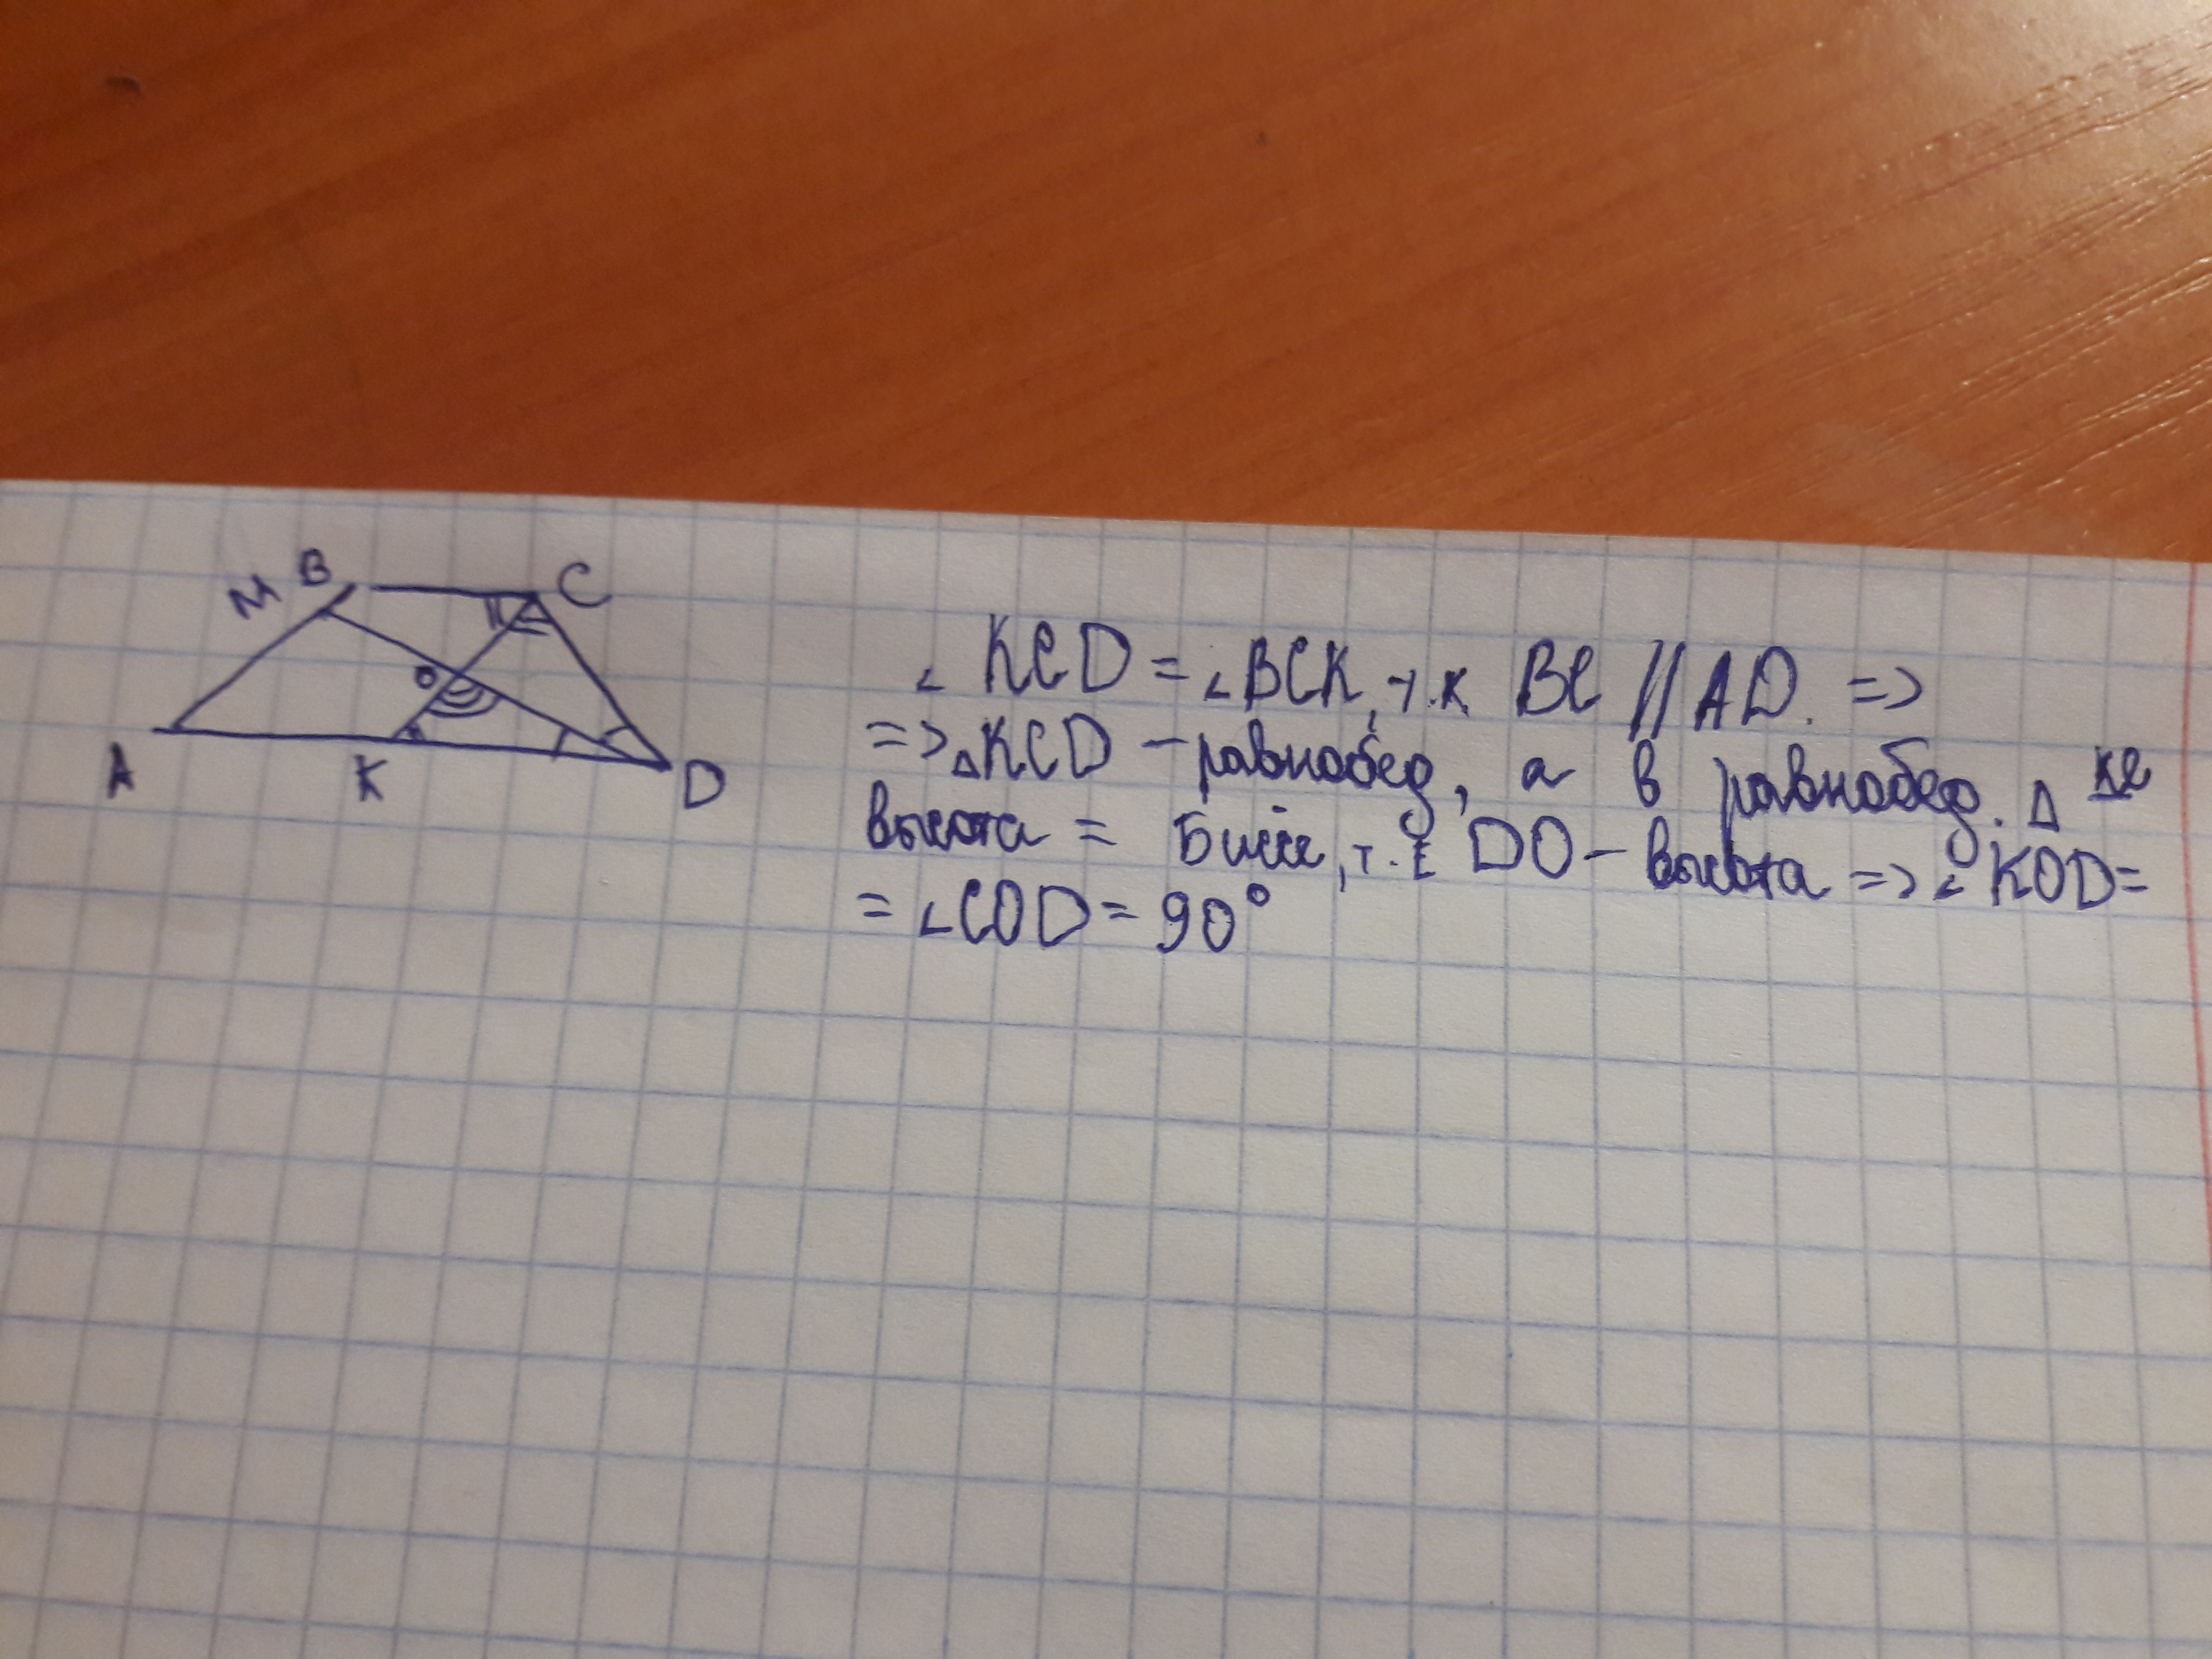 M B C
O
A K D
∠ KCD = ∠BCK, т.к BC // AD. =>
=> △KCD – равнобед, а в равнобед. △
высота = бисс, т.е DO – высота => ∠ KOD=
= ∠COD = 90°